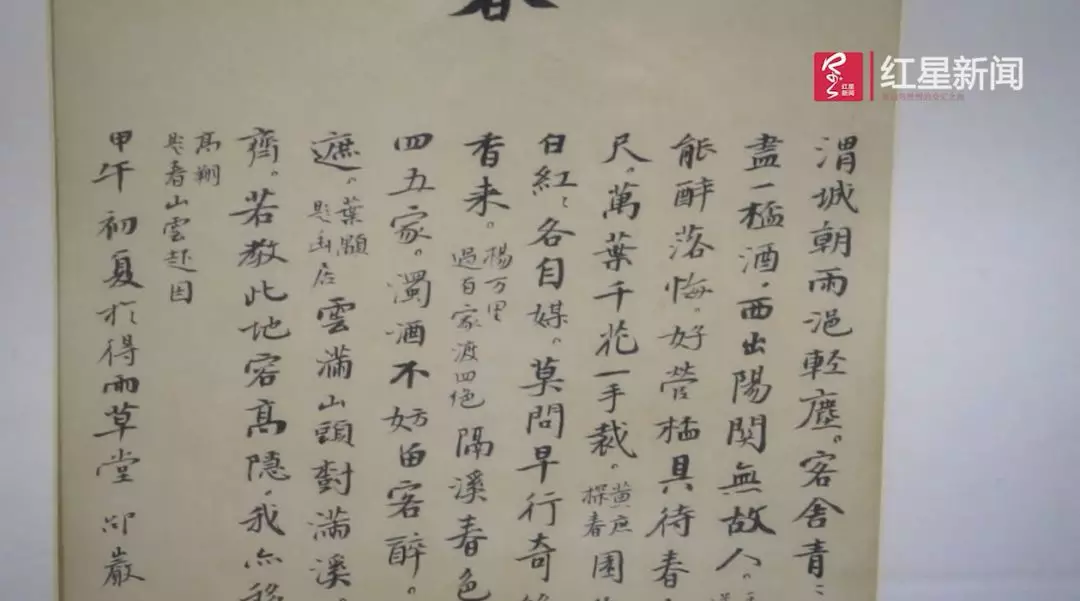 春
红星新闻
红星新闻
渭城朝雨浥輕塵。客舍青〻
盡一桮酒，西出陽関無故人。
能醉落梅。好營桮具待春
尺。萬葉千花一手裁。黄庶探春園
白紅〻各自媒。莫問早行奇
香来。楊万里過百家渡四絕隔溪春色
四五家。濁酒不妨留客醉。
遮。葉顒題幽居雲滿山頭樹滿溪。
齊。若教此地容高隱，我亦移
高翔題春山雲起图
甲午初夏於得雨草堂 邵巖